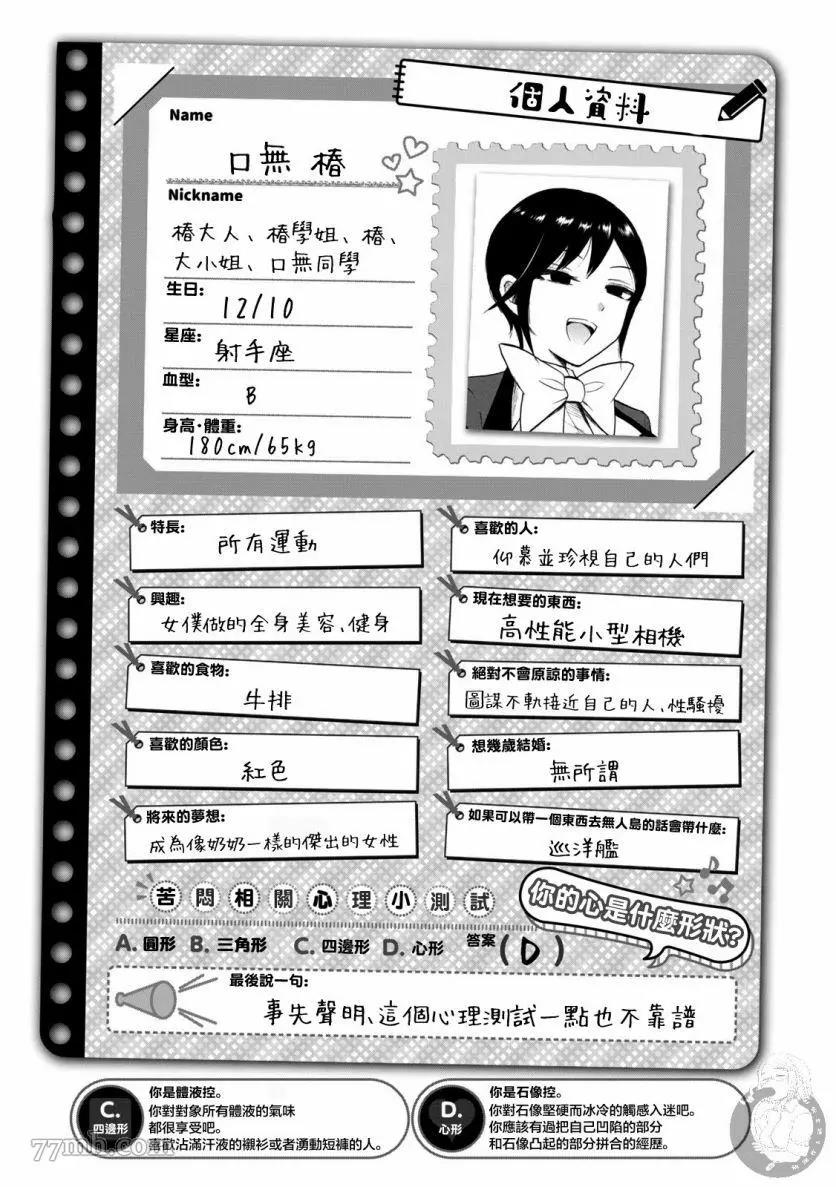 個人資料
Name
口無 椿
Nickname
椿大人、椿學姐、椿、
大小姐、口無同學
生日:
12/10
星座:
射手座
血型:
B
身高·體重:
180cm/65kg
特長:
所有運動
喜歡的人:
仰慕並珍視自己的人們
興趣:
女僕做的全身美容、健身
現在想要的東西:
高性能小型相機
喜歡的食物:
牛排
絕對不會原諒的事情:
圖謀不軌接近自己的人、性騷擾
喜歡的顏色:
紅色
想幾歲結婚:
無所謂
將來的夢想:
成為像奶奶一樣的傑出的女性
如果可以帶一個東西去無人島的話會帶什麼:
巡洋艦
苦悶相關心理小測試
你的心是什麼形狀?
A. 圓形 B. 三角形 C. 四邊形 D. 心形 答案 (D)
最後說一句:
事先聲明、這個心理測試一點也不靠譜
C.
四邊形
你是體液控。
你對對象所有體液的氣味
都很享受吧。
喜歡沾滿汗液的襯衫或者湧動短褲的人。
D.
心形
你是石像控。
你對石像堅硬而冰冷的觸感入迷吧。
你應該有過把自己凹陷的部分
和石像凸起的部分拼合的經歷。
77mh.com